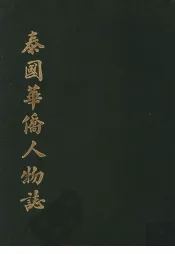 泰國華僑人物誌